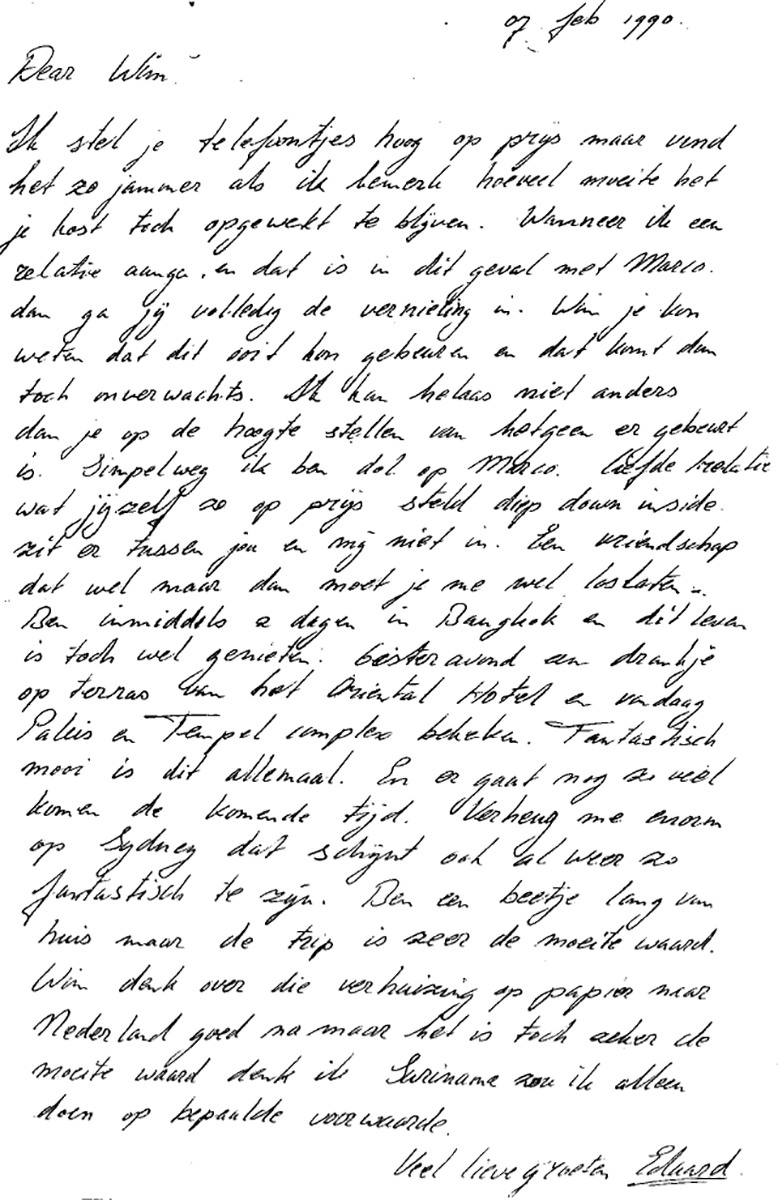 07 feb 1990.
Dear Wim
Ik stel je telefoontjes hoog op prijs maar vind
het zo jammer als ik bemerk hoeveel moeite het
je kost toch opgewekt te blijven. Wanneer ik een
relatie aanga, en dat is in dit geval met Marco.
dan ga jij volledig de vernieling in. Wim je kon
weten dat dit ooit kon gebeuren en dat komt dan
toch onverwachts. Ik kan helaas niet anders
dan je op de hoogte stellen van hetgeen er gebeurt
is. Simpelweg ik ben dol op Marco. liefde relatie
wat jijzelf zo op prijs steld diep down inside.
zit er tussen jou en mij niet in. Een vriendschap
dat wel maar dan moet je me wel loslaten..
Ben inmiddels 2 dagen in Bangkok en dit leven
is toch wel genieten. Gisteravond een drankje
op terras van het Oriental Hotel en vandaag
Paleis en Tempel complex bekeken. Fantastisch
mooi is dit allemaal. En er gaat nog zo veel
komen de komende tijd. Verheug me enorm
op Sydney dat schijnt ook al weer zo
fantastisch te zijn. Ben een beetje lang van
huis maar de trip is zeer de moeite waard.
Wim denk over die verhuizing op papier naar
Nederland goed na maar het is toch zeker de
moeite waard denk ik Suriname zou ik alleen
doen op bepaalde voorwaarde.
Veel lieve groeten Eduard